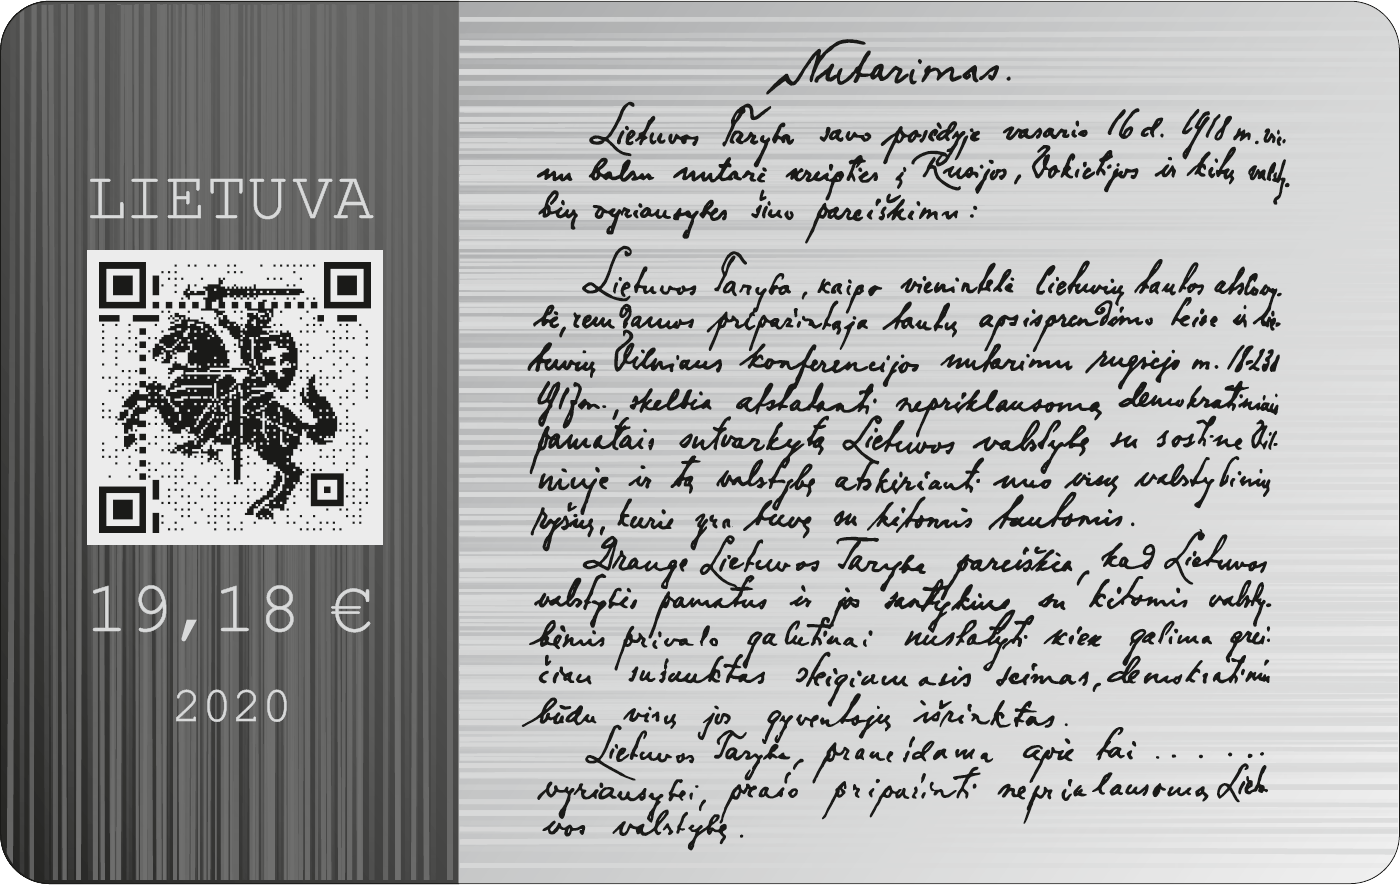 LIETUVA
19,18 €
2020
Nutarimas.
Lietuvos Taryba savo posėdyje vasario 16 d. 1918 m. vie-
nu balsu nutarė kreipties į Rusijos, Vokietijos ir kitų valsty-
bių vyriausybes šiuo pareiškimu:
Lietuvos Taryba, kaipo vienintelė lietuvių tautos atstovy-
bė, remdamos pripažintąja tautų apsisprendimo teise ir lie-
tuvių Vilniaus konferencijos nutarimu rugsėjo m. 18-23 d
1917 m., skelbia atstatanti nepriklausomą demokratiniais
pamatais sutvarkytą Lietuvos valstybę su sostine Vil-
niuje ir tą valstybę atskirianti nuo visų valstybinių
ryšių, kurie yra buvę su kitomis tautomis.
Drauge Lietuvos Taryba pareiškia, kad Lietuvos
valstybės pamatus ir jos santykius su kitomis valsty-
bėmis privalo galutinai nustatyti kiek galima grei-
čiau sušauktas steigiamasis seimas, demokratiniu
būdu visų jos gyventojų išrinktas.
Lietuvos Taryba, pranešdama apie tai . . . . . .
vyriausybei, prašo pripažinti nepriklausomą Lietu-
vos valstybę.